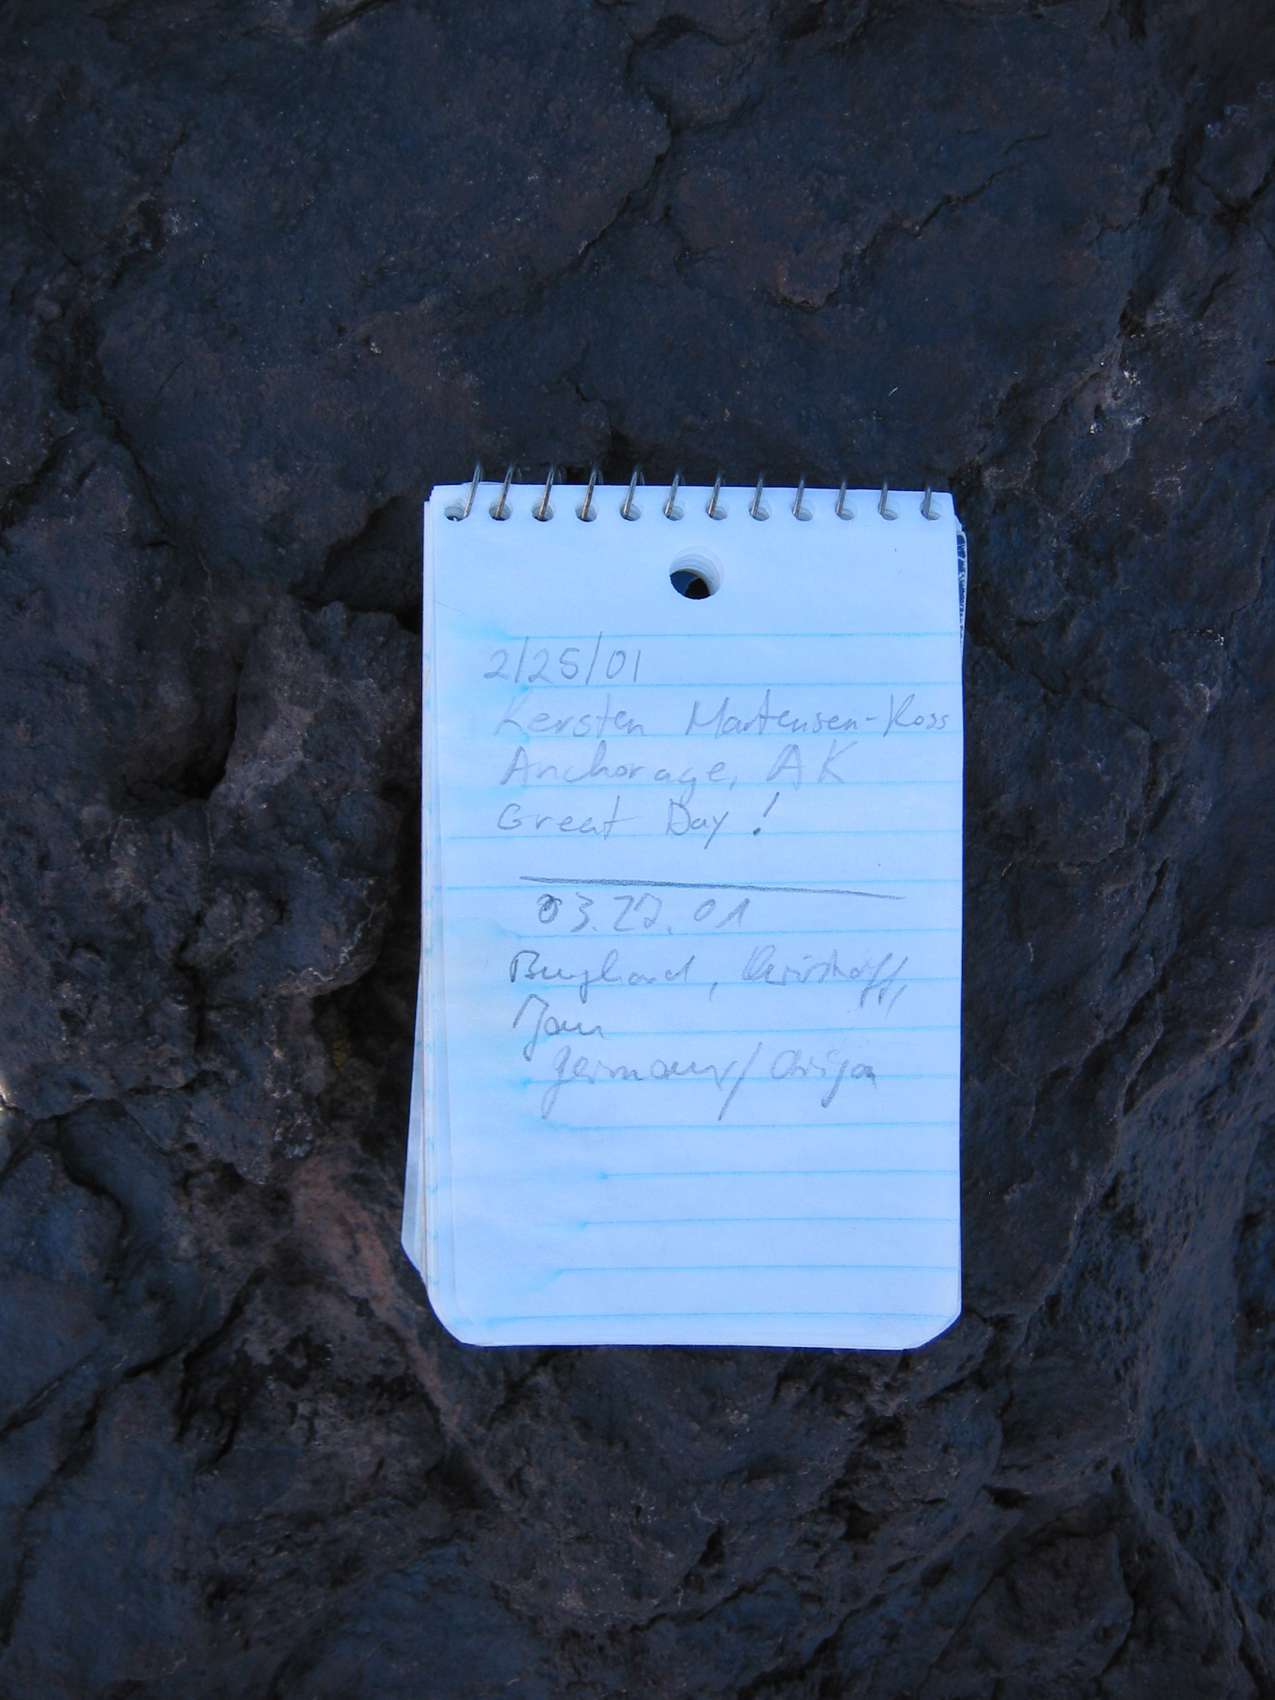 2/25/01
Kersten Martensen-Ross
Anchorage, AK
Great Day!
03.27.01
Burghard,
Jan
Germany/